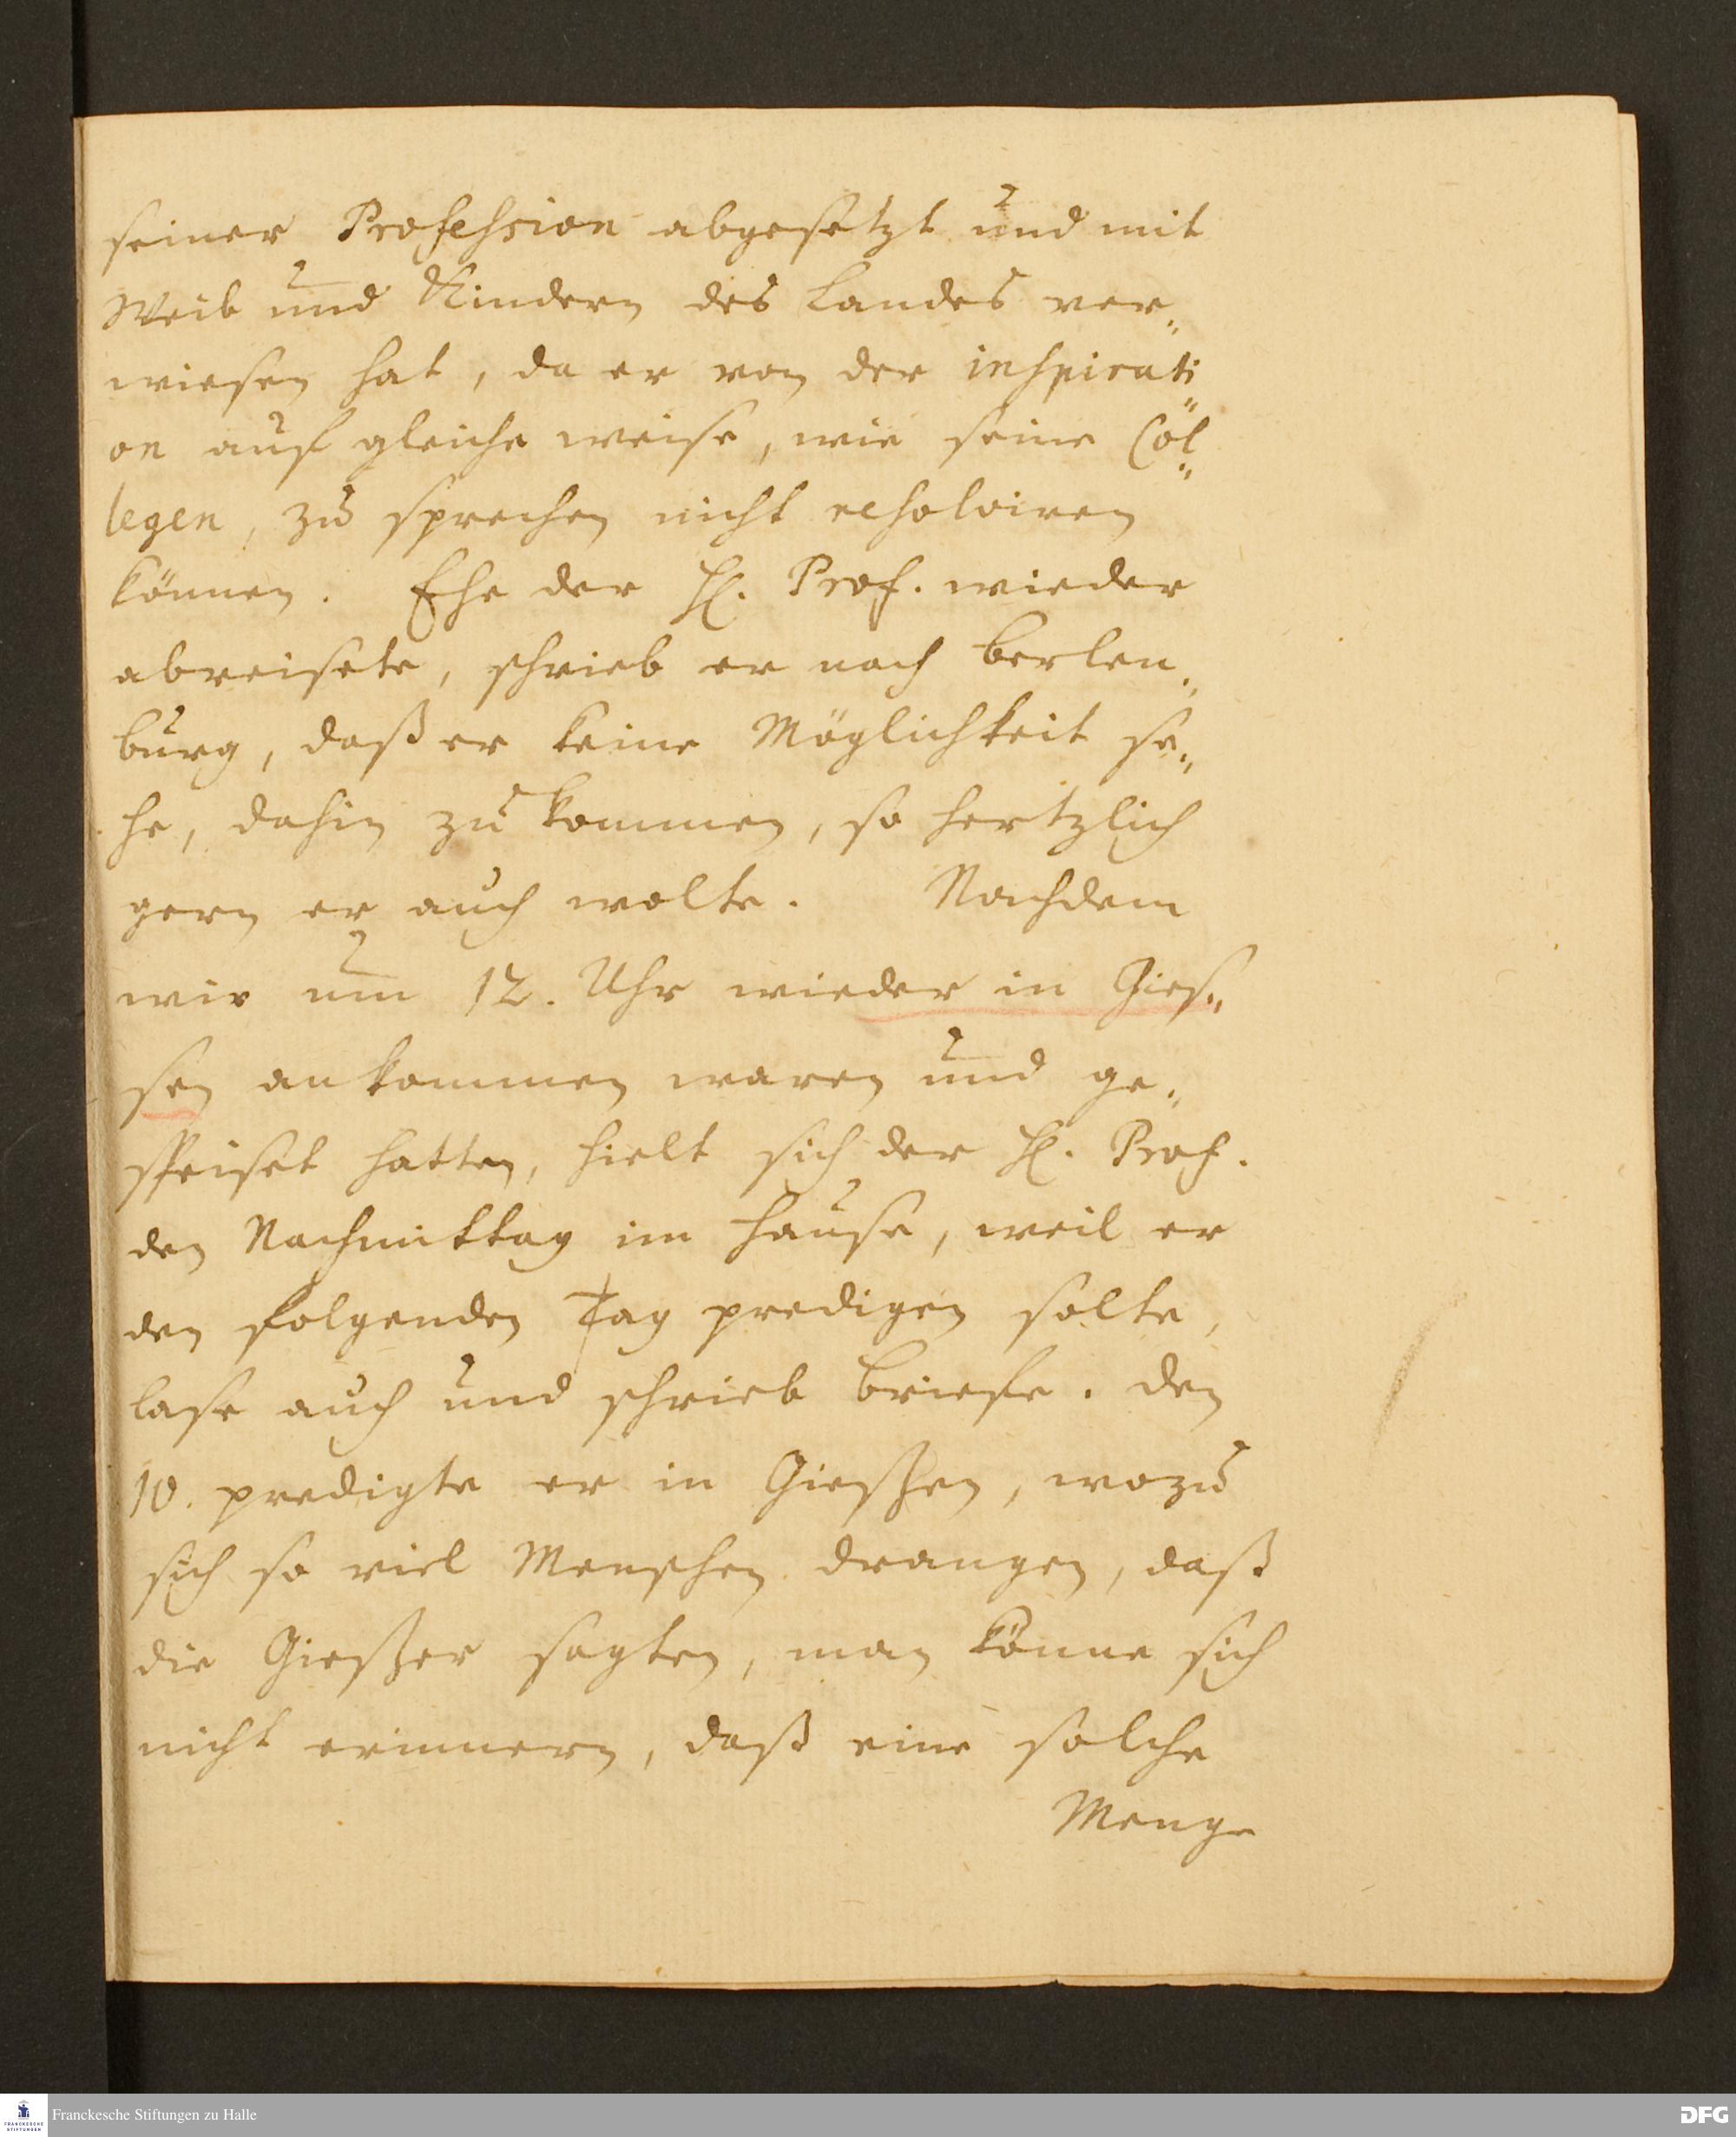 seiner Profession abgesetzt und mit
Weib und Kindern des Landes ver„
wiesen hat, da er von der inspirati„
on auf gleiche weise, wie seine Col„
legen, zu sprechen nicht resolviren
können. Ehe der H. Prof. wieder
abreisete, schrieb er nach Berlen„
burg, daß er keine Möglichkeit se„
he, dahin zu kommen, so hertzlich
gern er auch wolte. Nachdem
wir um 12. Uhr wieder in Gies„
sen ankommen waren und ge„
speiset hatten, hielt sich der H. Prof.
den Nachmittag im Hause, weil er
den folgenden Tag predigen solte,
lase auch und schrieb Briefe. Den
10. predigte er in Gießen, wozu
sich so viel Menschen drangen, daß
die Gießer sagten, man könne sich
nicht erinnern, daß eine solche
Menge
Franckesche Stiftungen zu Halle
FRANCKESCHE
STIFTUNGEN
DFG